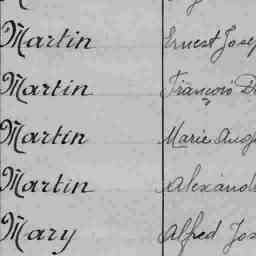 Martin Ernest Jose
Martin François D
Martin Marie Aug
Martin Alexand
Mary Alfred Jos